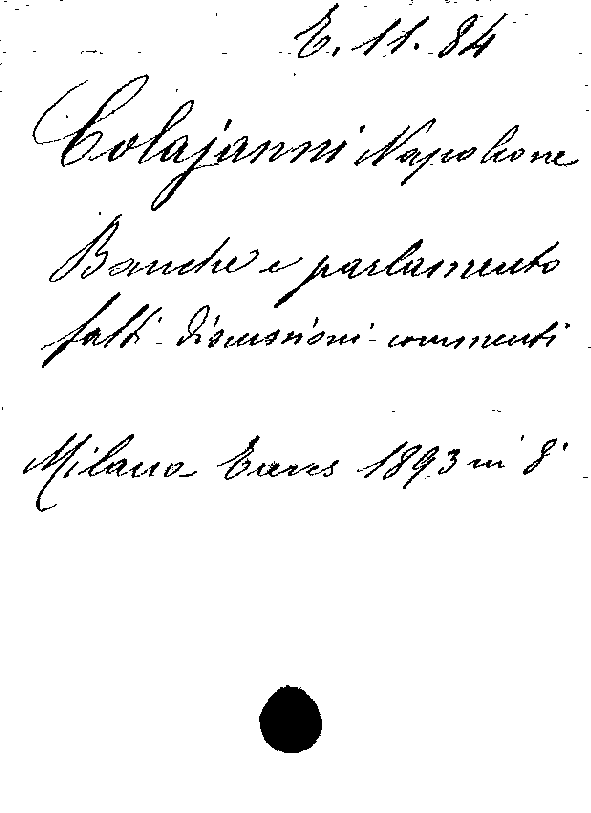 E. 11. 84
Colajanni Napoleone
Banche e parlamento
fatti - discussioni - commenti
Milano Treves 1893 in 8°